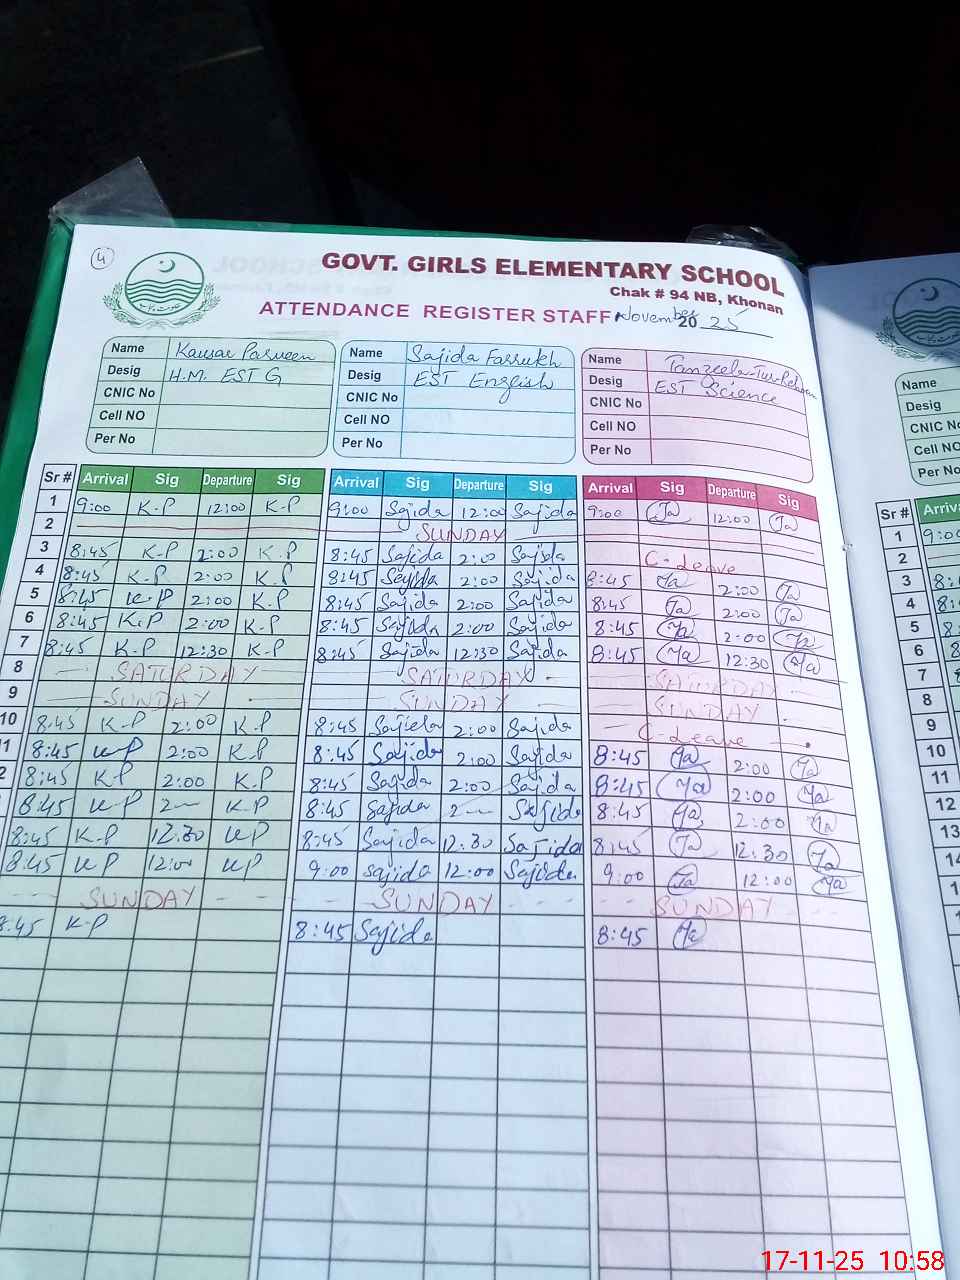 4
GOVT. GIRLS ELEMENTARY SCHOOL
Chak # 94 NB, Khonan
ATTENDANCE REGISTER STAFF November 20 25
Name Kausar Parveen Name Sajida Farrukh Name Tanzeela-Tur-Rehman Name
Desig H.M. EST G Desig EST English Desig EST Science Desig
CNIC No CNIC No CNIC No CNIC No
Cell NO Cell NO Cell NO Cell NO
Per No Per No Per No Per No
Sr # Arrival Sig Departure Sig Arrival Sig Departure Sig Arrival Sig Departure Sig Sr #
1 9:00 K.P 12:00 K.P 9:00 Sajida 12:00 Sajida 9:00 Ta 12:00 Ta 1 9:00
2 SUNDAY 2
3 8:45 K.P 2:00 K.P 8:45 Sajida 2:00 Sajida C-Leave 3
4 8:45 K.P 2:00 K.P 8:45 Sajida 2:00 Sajida 8:45 Ta 2:00 Ta 4
5 8:45 K.P 2:00 K.P 8:45 Sajida 2:00 Sajida 8:45 Ta 2:00 Ta 5
6 8:45 K.P 2:00 K.P 8:45 Sajida 2:00 Sajida 8:45 Ta 2:00 Ta 6
7 8:45 K.P 12:30 K.P 8:45 Sajida 12:30 Sajida 8:45 Ta 12:30 Ta 7
8 SATURDAY SATURDAY SATURDAY 8
9 SUNDAY SUNDAY SUNDAY 9
10 8:45 K.P 2:00 K.P 8:45 Sajida 2:00 Sajida C-Leave 10
11 8:45 KP 2:00 K.P 8:45 Sajida 2:00 Sajida 8:45 Ta 2:00 Ta 11
2 8:45 K.P 2:00 K.P 8:45 Sajida 2:00 Sajida 8:45 Ta 2:00 Ta 12
8:45 KP 2 K.P 8:45 Sajida 2 Sajida 8:45 Ta 2:00 Ta 13
8:45 K.P 12:30 KP 8:45 Sajida 12:30 Sajida 8:45 Ta 12:30 Ta 14
8:45 KP 12:00 KP 9:00 Sajida 12:00 Sajida 9:00 Ta 12:00 Ta
SUNDAY SUNDAY SUNDAY
8:45 K-P 8:45 Sajida 8:45 Ta
17-11-25 10:58